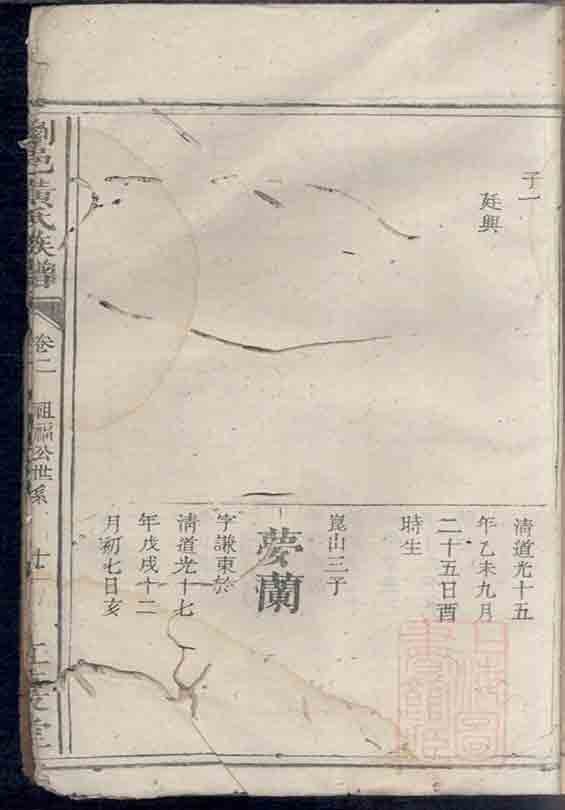 子一
廷興
清道光十五
年乙未九月
二十五日酉
時生
崑山三子
夢蘭
字謙東於
清道光十七
年戊戌十二
月初七日亥
瀏邑黃氏族譜
卷二
祖福公世系
江夏堂
上海圖
書館藏